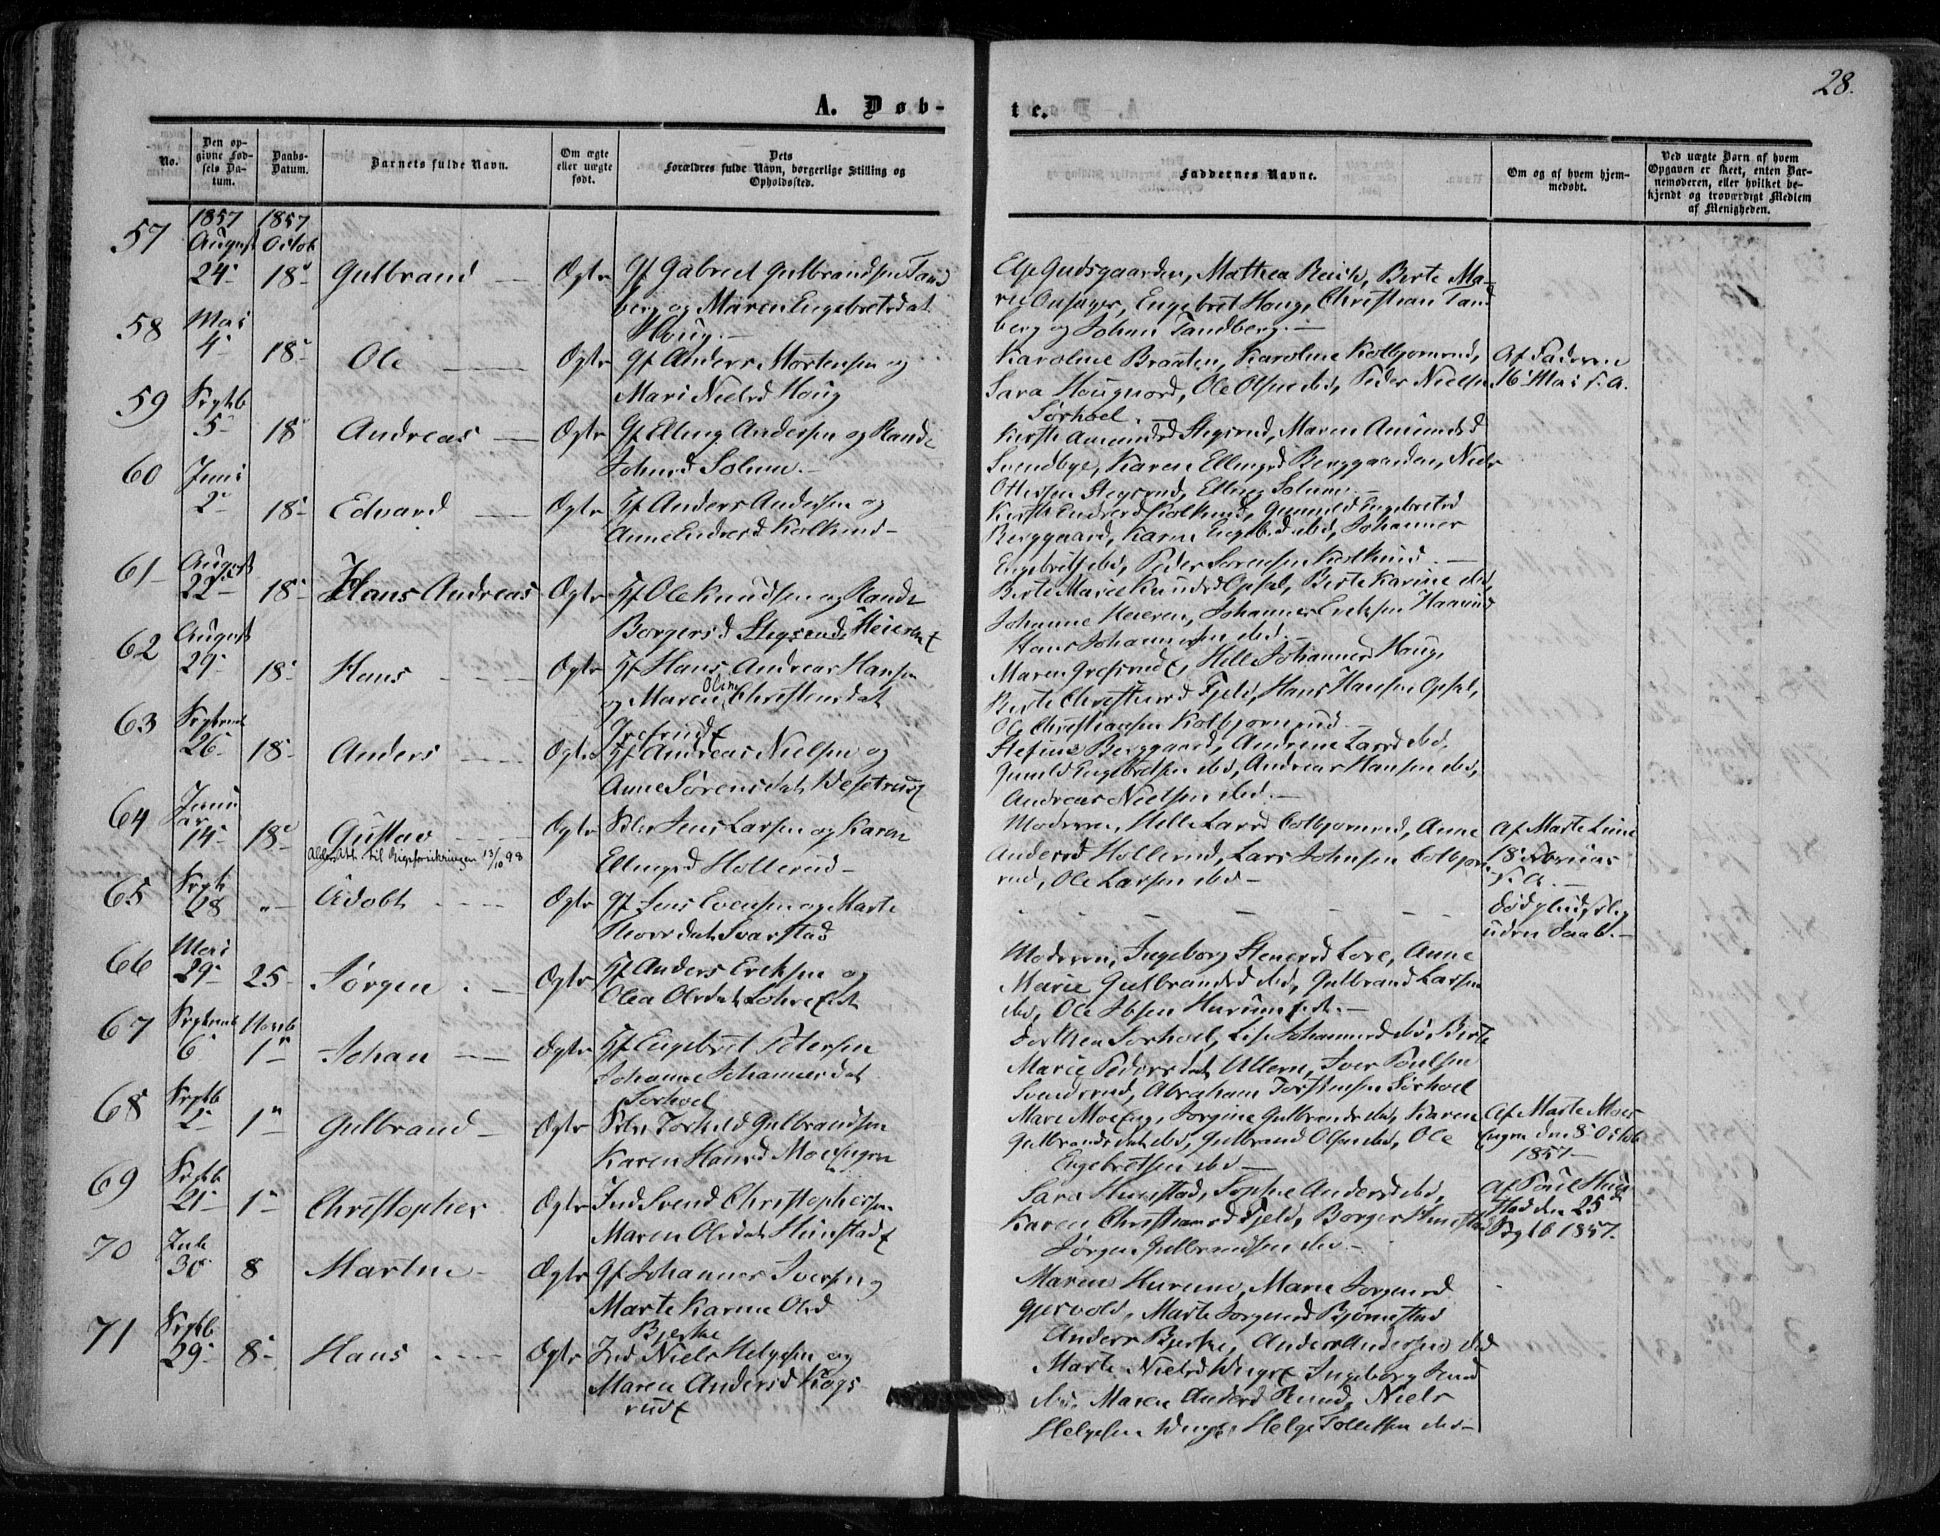 28.
A. Døb-
te.
No.
Den op-
givne Fød-
sels Da-
tum.
Daabs-
Datum.
Barnets fulde Navn.
Om ægte
eller uægte
født.
Dets
Forældres fulde Navn, borgerlige Stilling og
Opholdssted.
Faddernes Navne.
Om og af hvem hjem-
medøbt.
Ved uægte Børn af hvem
Opgaven er skeet, enten Bar-
nemoderen, eller hvilket be-
kjendt og troværdigt Medlem
af Menigheden.
1857 1857
57 August Octob
24 18 Gulbrand Ægte Gf Gabriel Gulbrandsen Tand
berg og Maren Engebretsdat
Houg.
Else Gudsgaarden, Mathea Berte Ma-
rie Onsager, Engebret Houg, Christian Tand
berg og Johan Tandberg.
58 Mai
4 18 Ole Ægte Gf Anders Mortensen og
Mari Nielsd Houg
Karoline Braaten, Karoline Kolbjørnrud,
Sara Hougnord, Ole Olsen ibd, Peder Nielsen
Sørhoel.
Af Faderen
16 Mai s. a.
59 Septb
5 18 Andreas Ægte Gf Elling Andersen og Rande
Johnsd Solum.
Amundsd Stegsrud, Maren Amundsd
Svendbye, Karen Ellingsd Berggaarden, Niels
Ottersen Stegsrud, Elling Solum.
60 Juni
2 18 Edvard Ægte Gf Anders Andersen og
Anne Endresd Kolkind
Endresd Kolkind, Gunnild Engebretsd
Berggaard, Karen Engebd ibd, Johannes
Engebretsen ibd, Peder Sørensen Kolkind.
61 August
22 18 Hans Andreas Ægte Gf Ole Knudsen og Rande
Borgersd Stegsrud Heieren
Berte Marie Knudsd Opsal, Berte Karine ibd,
Johanne Heieren, Johannes Eriksen Haavind
Hans Johannesen ibd.
62 August
29 18 Hans Ægte Gf Hans Andreas Hansen
og Maren Oline Christensdat
Grefsrud
Maren Grefsrud, Helle Johannesd Haug,
Berte Christensd Fjeld, Hans Hansen Opsal,
Ole Christiansen Kolbjørnrud
63 Septemb
26 18 Anders Ægte Gf Andreas Nielsen og
Anne Sørensdat
Berggaard, Andrine Larsd ibd,
Engebretsen ibd, Andreas Hansen ibd,
Andreas Nielsen ibd.
64 Janu
ar
14 18 Gustav Ægte Jens Larsen og Karen
Ellingsd Hollerud
Alders Att. til Rigsforsikringen 13/10 98
Moderen, Helle Larsd Colbjørnrud, Anne
Andersd Hollerud, Lars Johnsen Colbjørn
rud, Ole Larsen ibd
Af Marte
18 Februar
s. a.
65 Septb
28 Udøbt Ægte Gf Jens Evensen og Marte
Svarstad
Død
uden Daab.
66 Mai
29 25 Jørgen Ægte Gf Anders Eriksen og
Olea Olsdat
Moderen, Ingeborg Stenersd Lore, Anne
Marie Gulbrandsd ibd, Gulbrand Larsen
ibd, Ole Ibsen
67 Septemb Novb
6 1 Johan Ægte Gf Engebret Petersen
Johanne Johannesdat
Sørhoel
Dorthea Sørhoel, Lise Johannesd ibd, Berte
Marie Pedersdat Ullern, Iver Poulsen
Svendsrud, Abraham Torstensen Sørhoel
68 Septb
2 1 Gulbrand Ægte Torkild Gulbrandsen
Karen Hansd Moe
Mari Jørgine Gulbrandsd ibd, Karen
Gulbrandsdat ibd, Gulbrand Olsen ibd, Ole
Engebretsen ibd
Af Marte Moe
engen den 8 Octob
1857
69 Septb
21 1 Christopher Ægte Ind Svend Christophersen
Maren Olsdat Hunstad
Sara Hunstad, Sophie Andersd ibd,
Karen Christiansd Fjeld, Borger Hunstad
Jørgen Gulbrandsen ibd
Af Poul Hun
stad den 25
Septb 1857.
70 Juli
30 8 Martin Ægte Gf Johannes Iversen og
Marte Karine Olsd
Bjerke
Maren Hurum, Marie Jørgensd
Gjervold, Marte Jørgensd Bjørnstad
Anders Bjerke, Anders Andersen ibd
71 Septb
29 8 Hans Ægte Ind Niels Helgesen og
Maren Andersd Kogs
rud
Marte Nielsd Ingeborg
ibd, Maren Andersd Niels
Helgesen Helge Tollefsen ibd